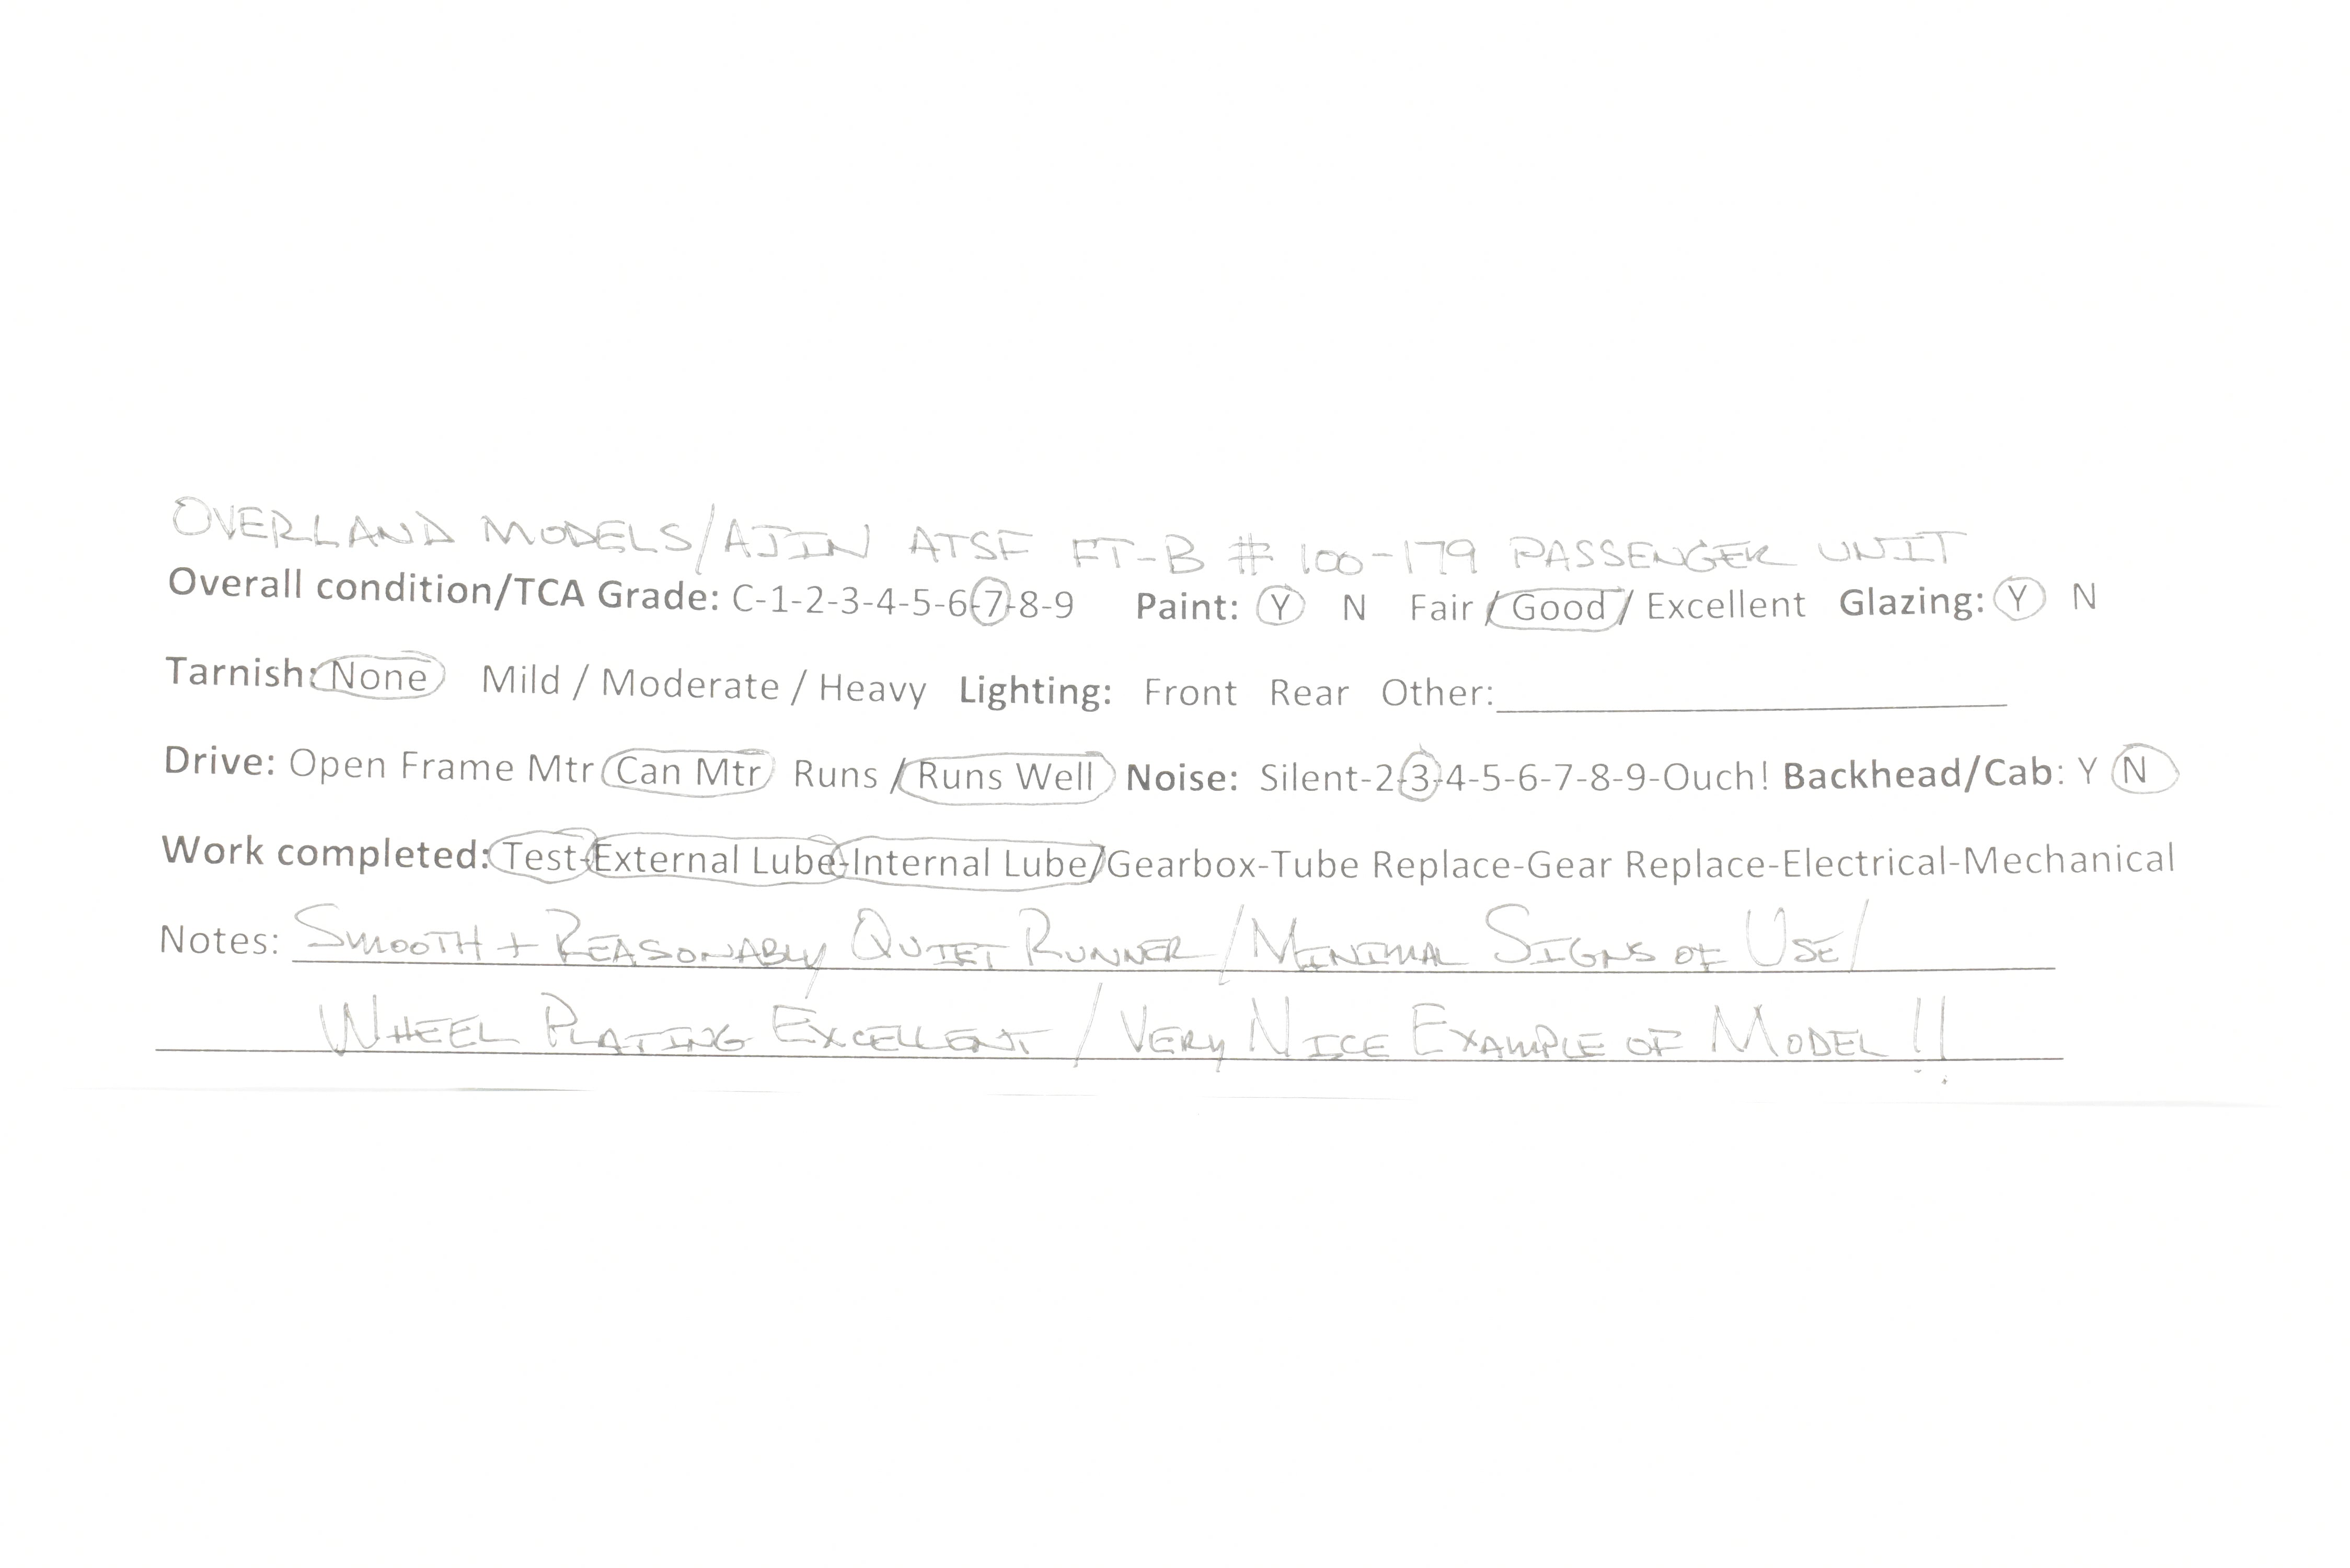 OVERLAND MODELS/AJIN ATSF FT-B # 100-179 PASSENGER UNIT
Overall condition/TCA Grade: C-1-2-3-4-5-6-7-8-9 Paint: Y N Fair / Good / Excellent Glazing: Y N
Tarnish: None Mild / Moderate / Heavy Lighting: Front Rear Other:
Drive: Open Frame Mtr Can Mtr Runs / Runs Well Noise: Silent-2-3-4-5-6-7-8-9-Ouch! Backhead/Cab: Y N
Work completed: Test-External Lube-Internal Lube/Gearbox-Tube Replace-Gear Replace-Electrical-Mechanical
Notes: SMOOTH + REASONABLY QUIET RUNNER/MINIMAL SIGNS OF USE/
WHEEL PLATING EXCELLENT / VERY NICE EXAMPLE OF MODEL!!